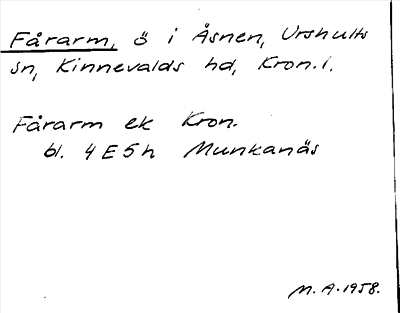 Fårarm, ö i Åsnen, Urshults
sn, Kinnevalds hd, Kron.l.
Fårarm ek Kron.
bl. 4E5h Munkanäs
M.A. 1958.